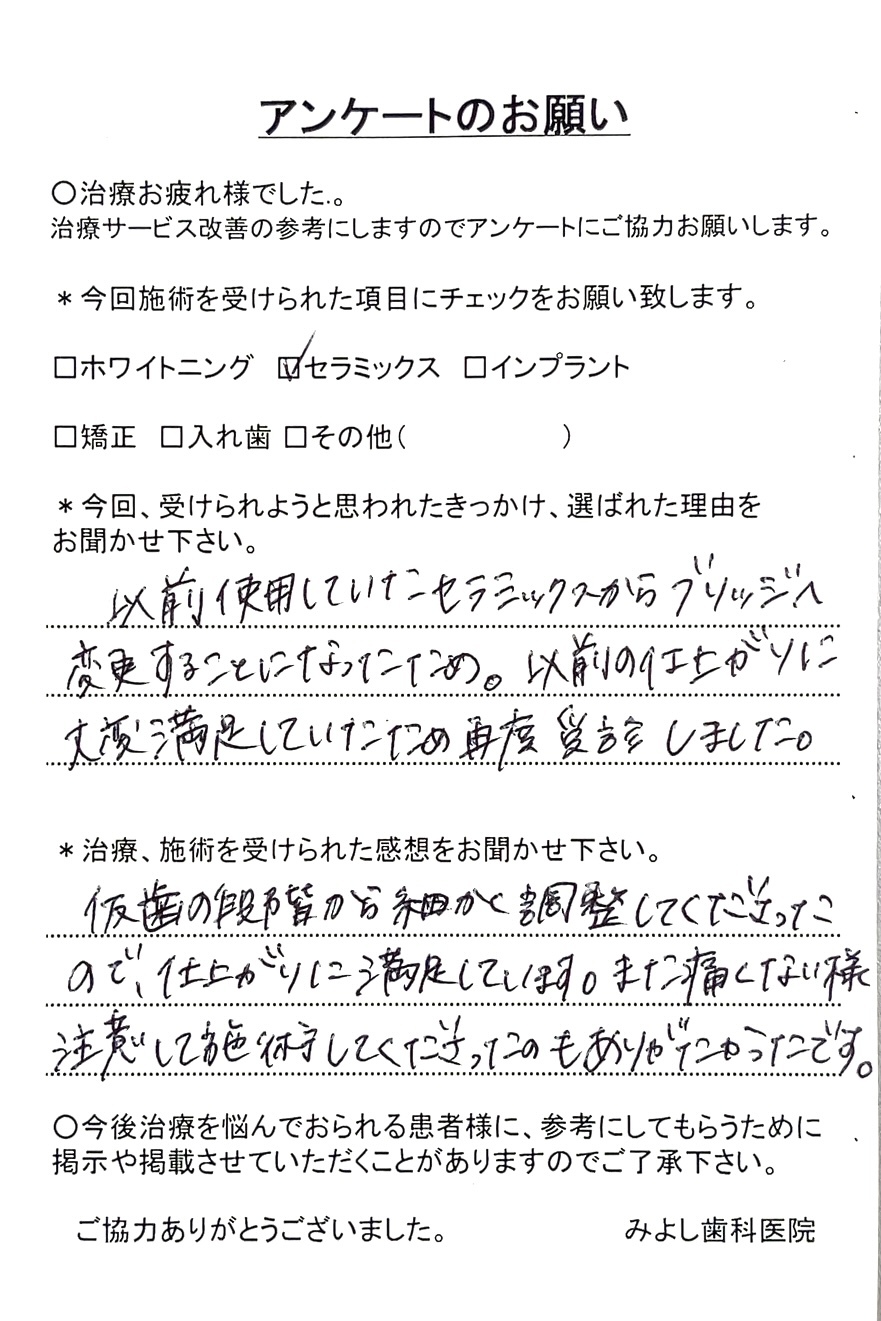 アンケートのお願い
〇治療お疲れ様でした.。
治療サービス改善の参考にしますのでアンケートにご協力お願いします。
＊今回施術を受けられた項目にチェックをお願い致します。
□ホワイトニング ☑セラミックス □インプラント
□矯正 □入れ歯 □その他( )
＊今回、受けられようと思われたきっかけ、選ばれた理由を
お聞かせ下さい。
以前使用していたセラミックスからブリッジへ
変更することになったため。以前の仕上がりに
大変満足していたため再度受診しました。
＊治療、施術を受けられた感想をお聞かせ下さい。
仮歯の段階から細かく調整してくださった
ので、仕上がりに満足しています。また痛くない様
注意して施術してくださったのもありがたかったです。
〇今後治療を悩んでおられる患者様に、参考にしてもらうために
掲示や掲載させていただくことがありますのでご了承下さい。
ご協力ありがとうございました。 みよし歯科医院